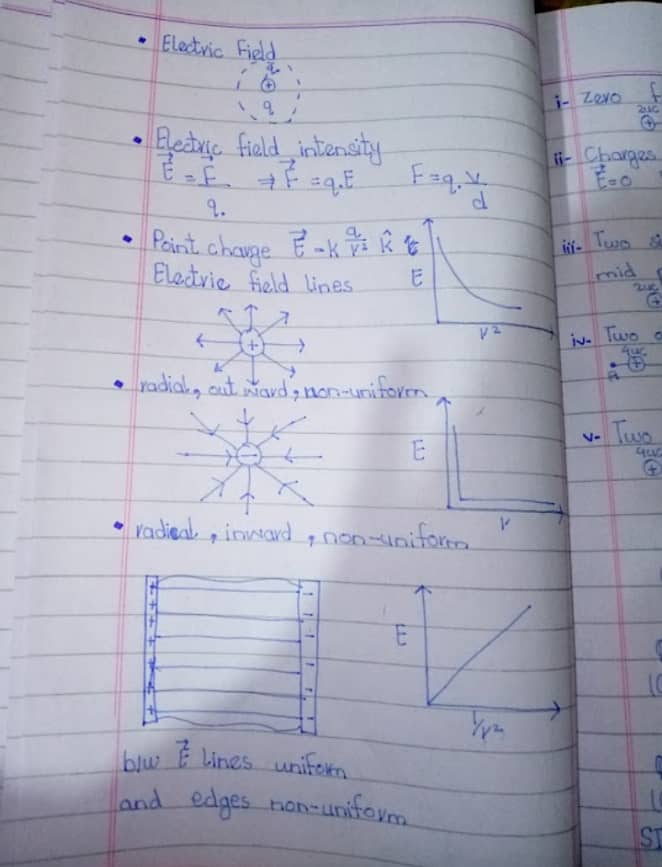 • Electric Field
+
q
• Electric field intensity
E = F/q. ⇒ F = q.E F = q.V/d
• Point charge E = k q/r² r̂
Electric field lines
E
r²
+
• radial, out ward, non-uniform
−
E
r
• radical, inward, non-uniform
+ + + + + + + +
− − − − − − −
E
1/r²
b/w E lines uniform
and edges non-uniform
i- Zero f
2uc
+
ii- Charges
E=0
iii- Two
mid
2uc
+
iv- Two
4uc
+
A
v- Two
4uc
+